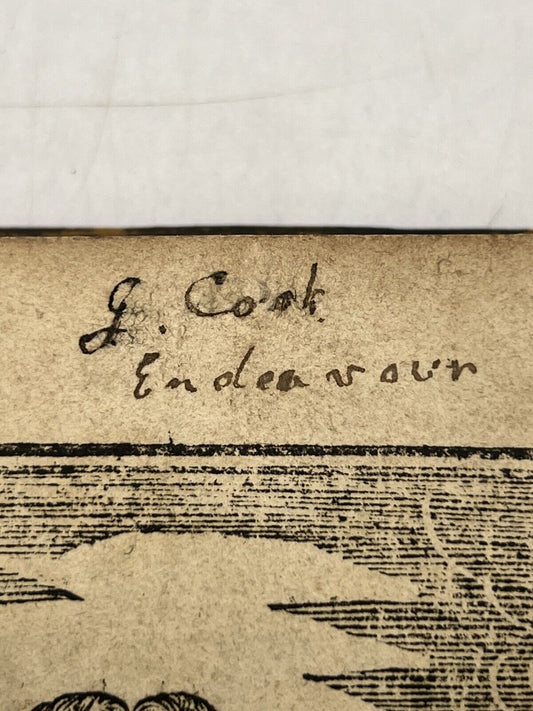 J. Cook
Endeavour